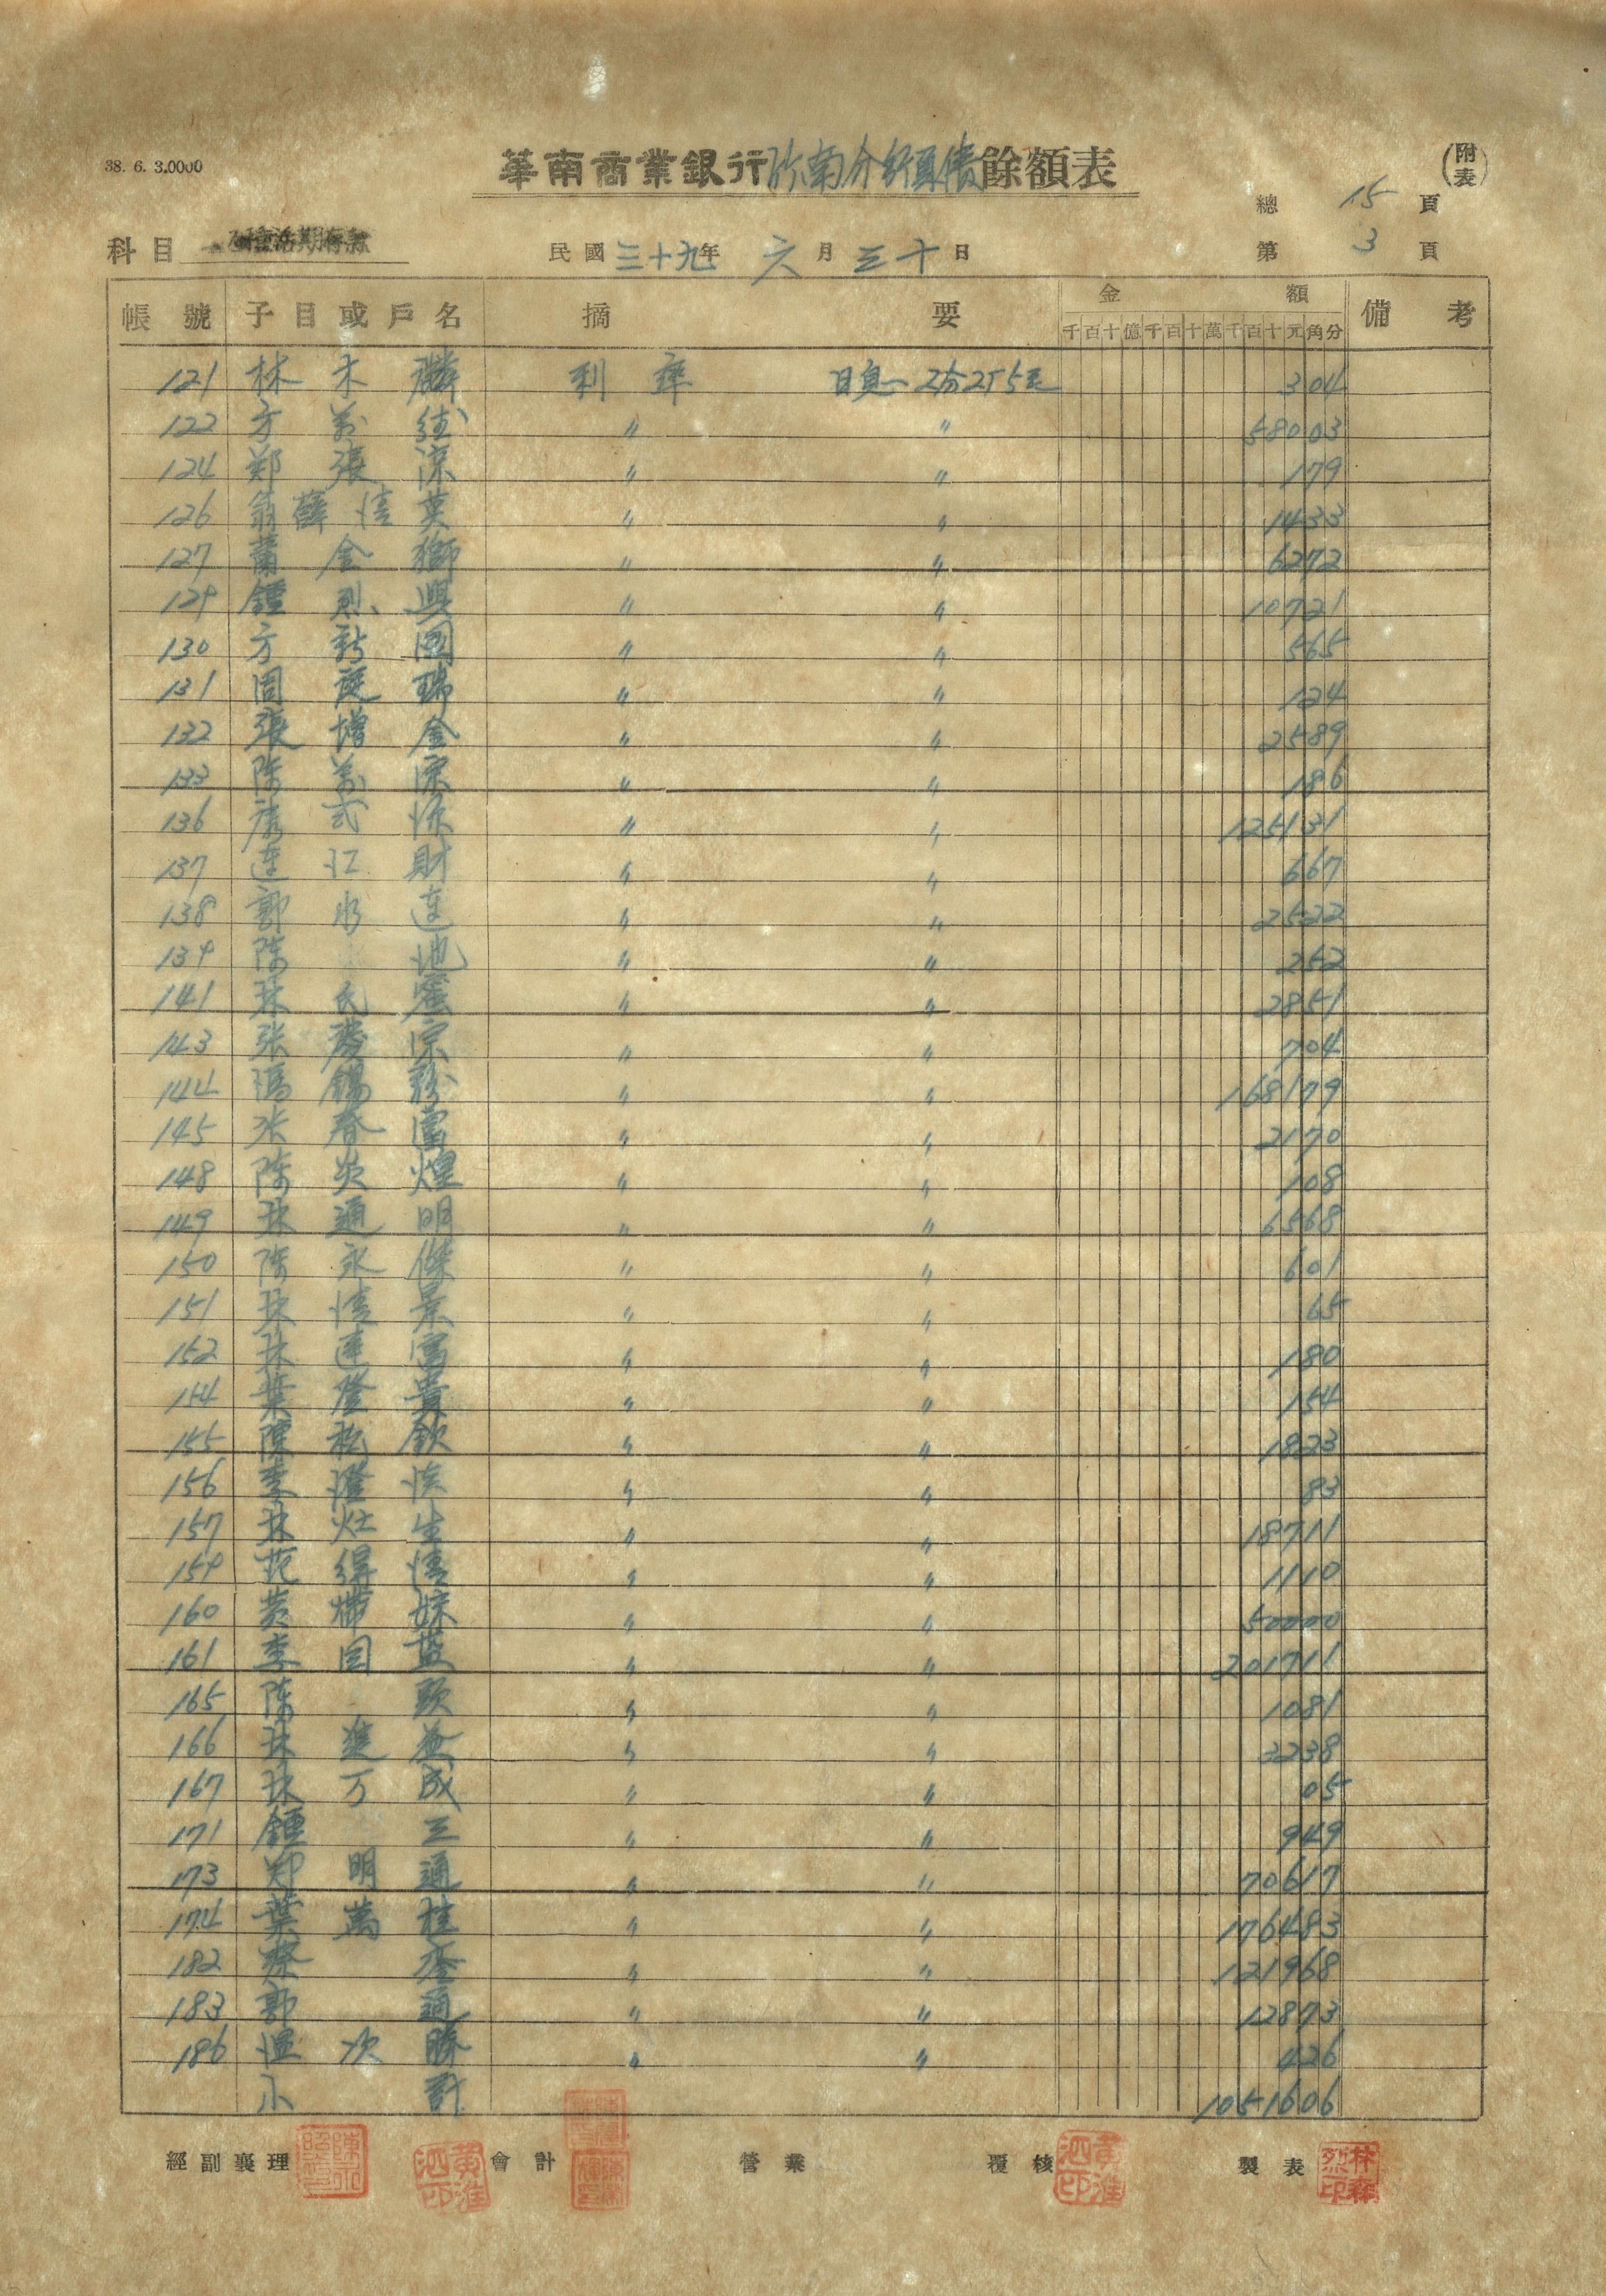 38. 6. 3.0000
華南商業銀行竹南分行負債餘額表
(附表)
總 15 頁
科目 乙種活期存款 民國 三十九年 六月 三十日 第 3 頁
帳號 子目或戶名 摘要 金額 備考
千百十億千百十萬千百十元角分
121 林木 利率 日息 2分2厂5毛 304
122 方萬 〃 〃 58003
124 鄭張涼 〃 〃 179
126 翁薛清英 〃 〃 1433
127 蕭金獅 〃 〃 6272
129 鍾烈興 〃 〃 10721
130 方新國 〃 〃 565
131 周庭瑞 〃 〃 124
132 張增金 〃 〃 2589
133 陳萬 〃 〃 186
136 式 〃 〃 125131
137 連江財 〃 〃 667
138 郭水連 〃 〃 2522
139 陳地 〃 〃 252
141 林 〃 〃 2851
143 张勝宗 〃 〃 704
144 馮錫 〃 〃 168179
145 张春富 〃 〃 2170
148 陳炎煌 〃 〃 108
149 林通明 〃 〃 6568
150 陳永傑 〃 〃 601
151 林清景 〃 〃 65
152 林連富 〃 〃 180
154 葉登貴 〃 〃 154
155 陳松欽 〃 〃 1823
156 李澄清 〃 〃 83
157 林灶生 〃 〃 18711
159 范得清 〃 〃 1110
160 黄妹 〃 〃 50000
161 李国 〃 〃 201711
165 陳 〃 〃 1081
166 林進益 〃 〃 3238
167 林万成 〃 〃 05
171 鍾三 〃 〃 949
173 郑明通 〃 〃 70617
174 葉萬桂 〃 〃 176483
182 蔡 〃 〃 121968
183 郭通 〃 〃 12873
186 溫次勝 〃 〃 426
小計 1051606
經副襄理 會計 營業 覆核 製表
黃淮泗印 黃淮泗印 林森烈印